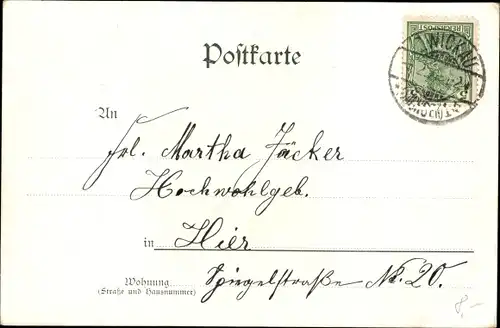 REICHSPOST
ZWICKAU
Postkarte
An
Frl. Martha Jäcker
Hochwohlgeb.
in Hier
Wohnung Spiegelstraße No. 20.
(Straße und Hausnummer)
8,-